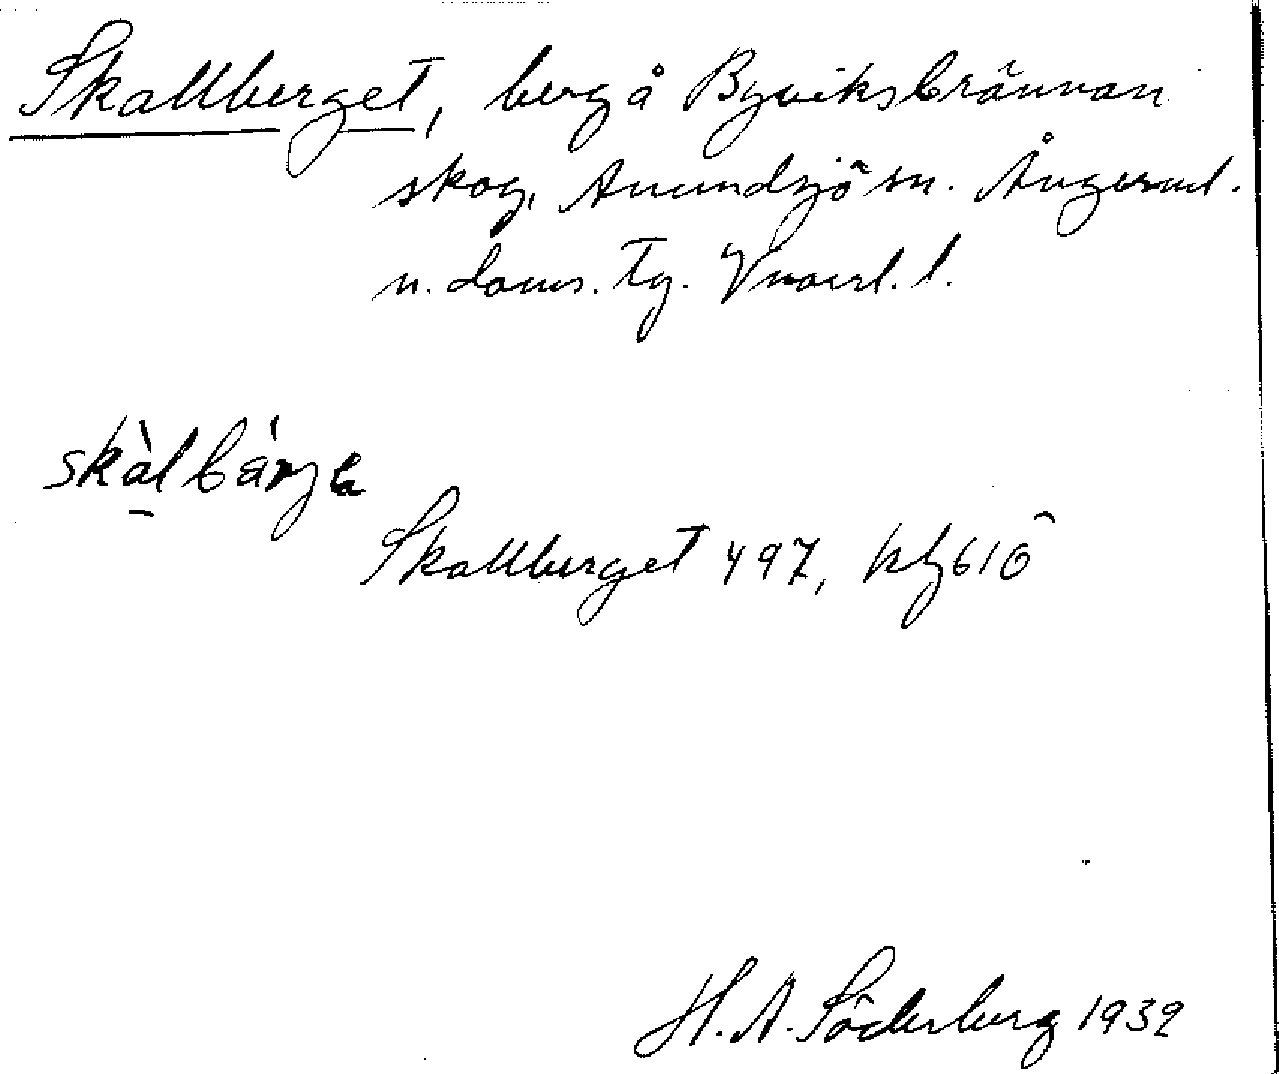 Skallberget, berg å Byviksbrännan
skog, Anundsjö sn. Ångerml.
n. doms. Tg. Vnorrl. l.
skàlbárje
Skallberget 497, 610
H. A. Söderberg 1939